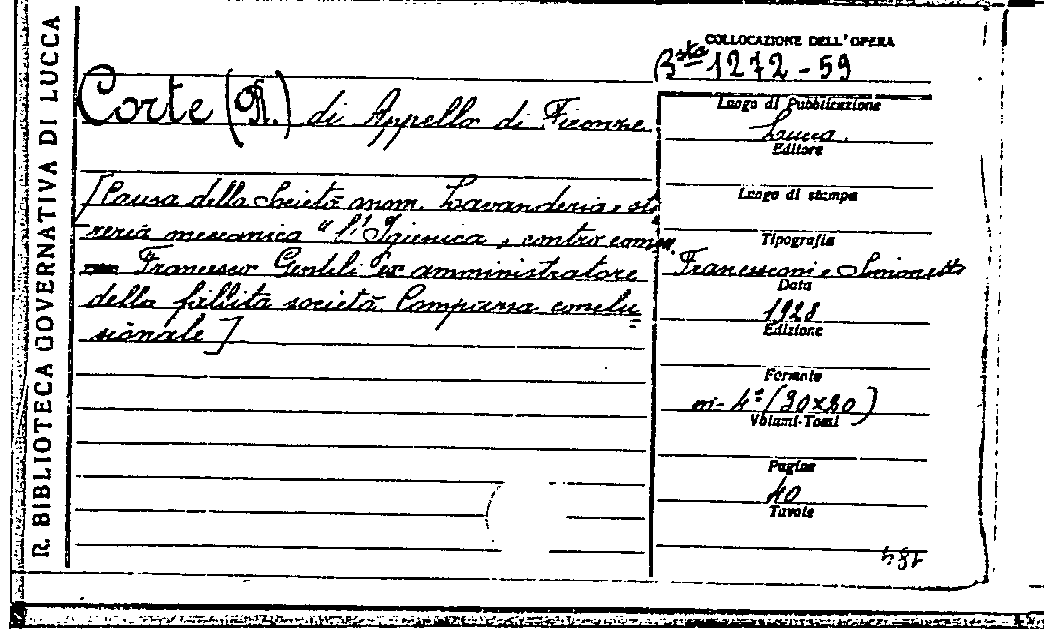 R. BIBLIOTECA GOVERNATIVA DI LUCCA
COLLOCAZIONE DELL'OPERA
Bsta 1272 - 59
Corte (R.) di Appello di Firenze
[Causa della Società anom. Lavanderia e sti
reria meccanica "l'Igienica, contro comm.
Francesco Gentili ex amministratore
della fallita società. Comparsa conclu
sionale]
Luogo di Pubblicazione
Lucca.
Editore
Luogo di stampa
Tipografia
Francesconi e Simonetti
Data
1928
Edizione
Formato
in-4° (30x20)
Volumi-Tomi
Pagine
40
Tavole
184